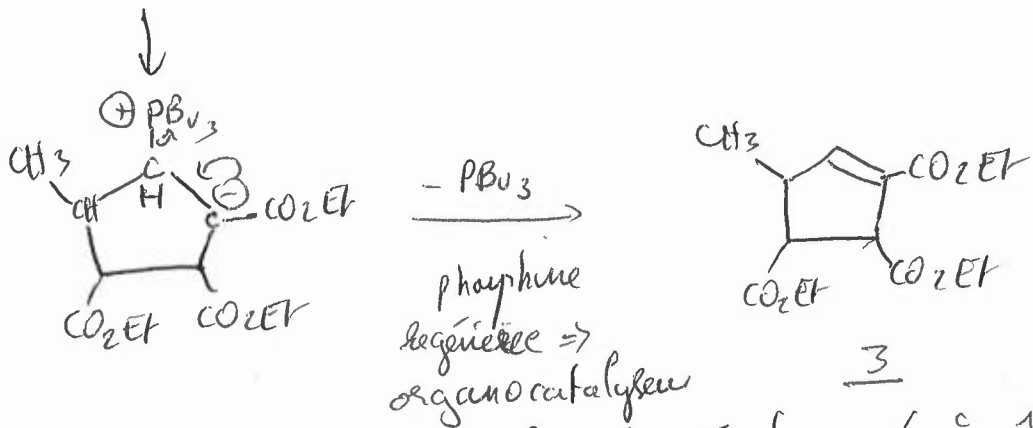 ⊕ PBu3
CH3 C
H
CH ⊖
C - CO2Et
CO2Et CO2Et
- PBu3
phosphine
régénérée =>
organocatalyseur
CH3
CO2Et
CO2Et CO2Et
3